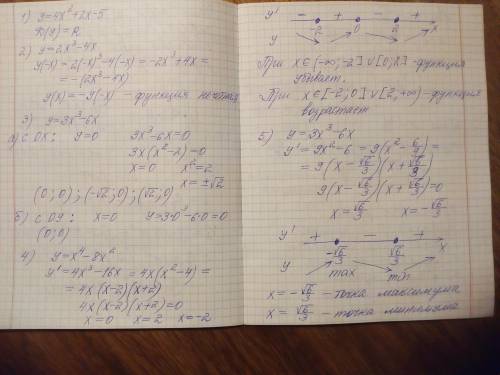 1) y=4x²+2x-5
D(y)=R
2) y=2x³-4x
y(-x)=2(-x)³-4(-x)=-2x³+4x=
=-(2x³-4x)
y(x)=-y(-x) - функция нечётная
3) y=3x³-6x
а) с OX: y=0 3x³-6x=0
3x(x²-2)=0
x=0 x²=2
x=±√2
(0;0);(-√2;0);(√2;0)
б) с OY: x=0 y=3·0³-6·0=0
(0;0)
4) y=x⁴-8x²
y'=4x³-16x=4x(x²-4)=
=4x(x-2)(x+2)
4x(x-2)(x+2)=0
x=0 x=2 x=-2
y' - + - +
-2 0 2 x
y
При x∈(-∞;-2]∪[0;2] -функция
убывает.
При x∈[-2;0]∪[2;+∞) -функция
возрастает
5) y=3x³-6x
y'=9x²-6=9(x²-6/9)=
=9(x-√6/3)(x+√6/3)
9(x-√6/3)(x+√6/3)=0
x=√6/3 x=-√6/3
y' + - +
-√6/3 √6/3 x
y max min
x=-√6/3 - точка максимума
x=√6/3 - точка минимума